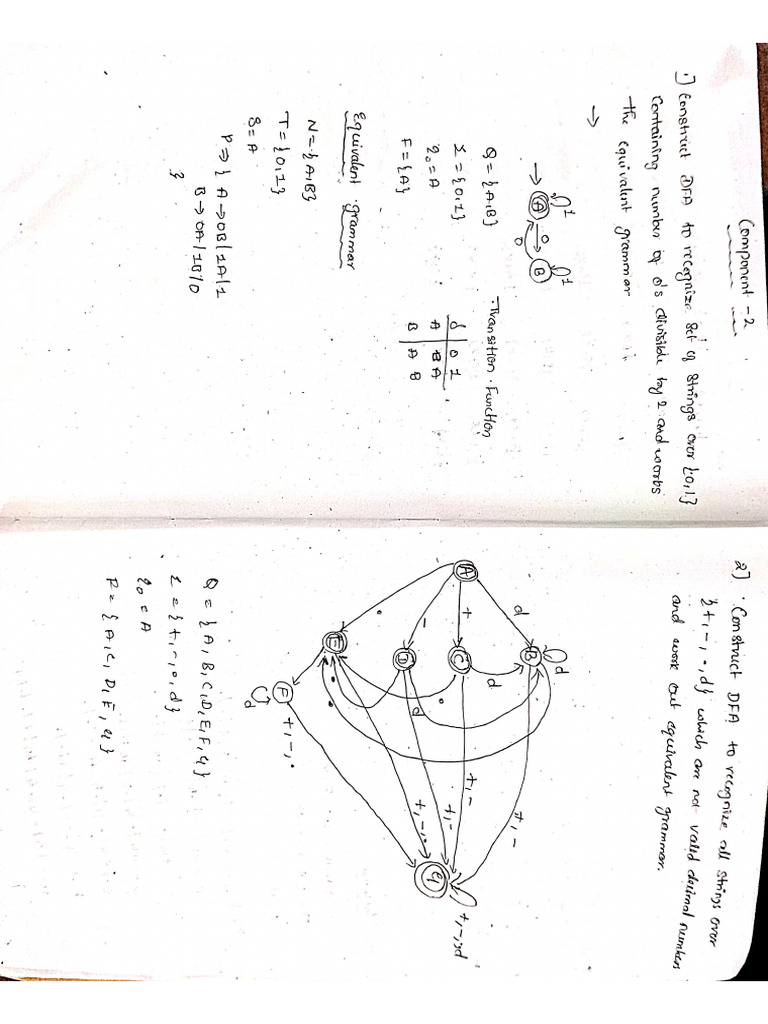 Component - 2
1] Construct DFA to recognize set of strings over {0,1}
Containing number of 0's divisible by 2 and words
the equivalent grammar
→
→ A 0 B
1 1
0
Q = {A,B}
Σ = {0,1}
q₀ = A
F = {A}
Transition Function
δ | 0 1
A | B A
B | A B
Equivalent grammar
N = {A,B}
T = {0,1}
S = A
P ⇒ { A → 0B/1A/1
B → 0A/1B/0
}
2] Construct DFA to recognize all strings over
{+,-,.,d} which are not valid decimal numbers
and work out equivalent grammar.
A B C D E F G
d
+
-
.
d
d
d
.
.
+,-
+,-
+,-
+,-,.
+,-,.
d
+,-,.,d
Q = {A,B,C,D,E,F,G}
Σ = {+,-,.,d}
q₀ = A
F = {A,C,D,E,G}